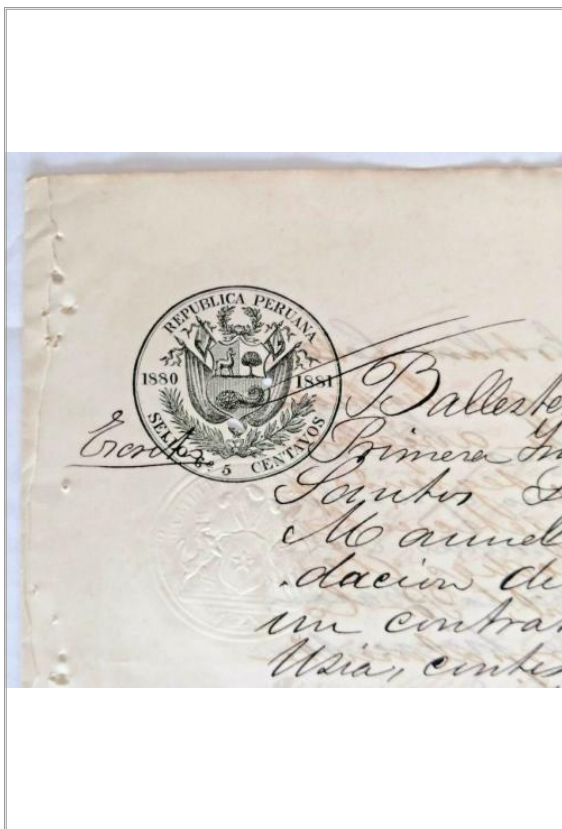 REPUBLICA PERUANA
1880 1881
SELLO 8º. 5 CENTAVOS
Balleste
Primera In
Santos
Manuel
dacion de
un contra
Usia, contes